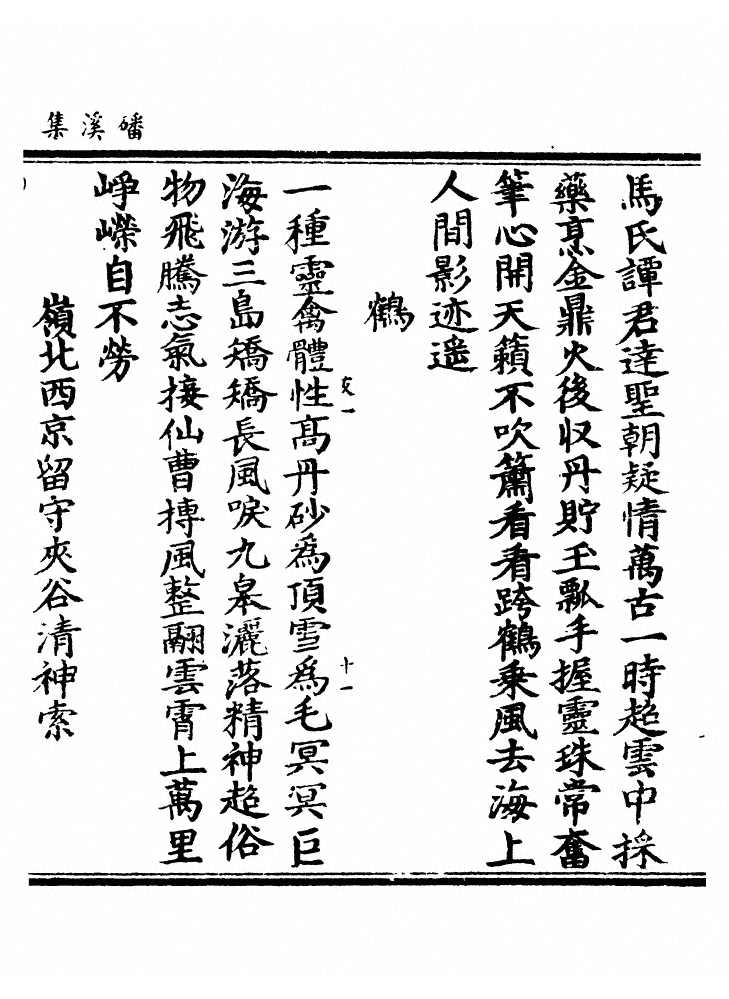 磻溪集
馬氏譚君達聖朝疑情萬古一時超雲中採
藥烹金鼎火後収丹貯玉瓢手握靈珠常奮
筆心開天籟不吹簫看看跨鶴乗風去海上
人間影迹遥
鶴
一種靈禽體性髙丹砂爲頂雪爲毛冥冥巨
海游三島矯矯長風唳九皋灑落精神超俗
物飛騰志氣接仙曹摶風整翮雲霄上萬里
崢嶸自不勞
嶺北西京留守夾谷清神索
友一
十一